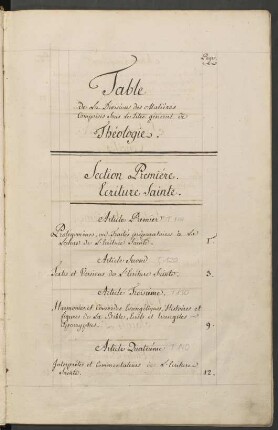 Page
Table
De La Division des Matières
Comprises Sous le titre général de
Théologie.
Section Première.
Ecriture Sainte.
Article Premier
Prolégomènes, ou Traités préparatoires à La
Lecture de L'Ecriture Sainte. 1.
Article Second
Textes et Versions de L'Ecriture Sainte. 3.
Article Troisième.
Harmonies et Concordes Evangéliques, Histoires et
figures de La Bible, Ecrits et Evangiles
Apocryphes. 9.
Article Quatrième
Interprètes et Commentateurs de L'Ecriture
Sainte. 12.